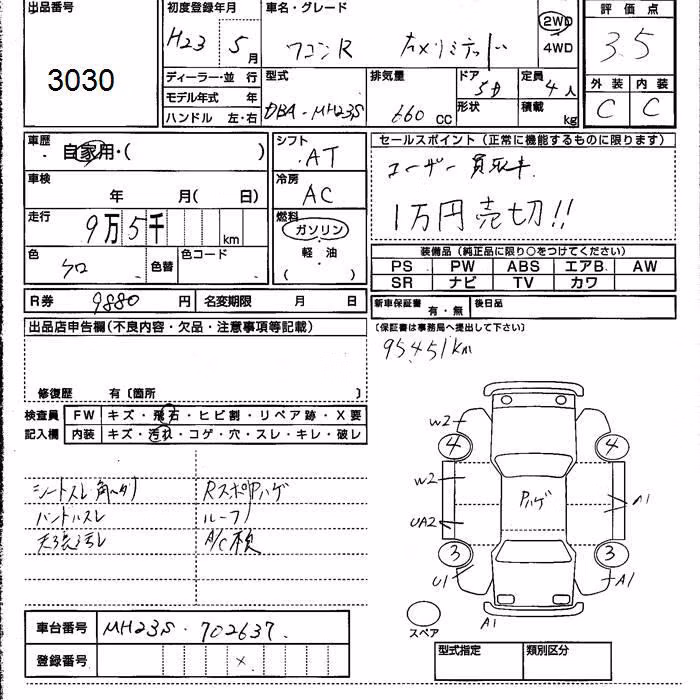 出品番号
3030
初度登録年月
H23 5月
車名・グレード
ワゴンR
リミテッド
2WD
4WD
評価点
3.5
外装 内装
C C
ディーラー・並行
モデル年式 年
ハンドル 左・右
型式
DBA-MH23S
排気量
660 CC
ドア
5D
形状
定員
4人
積載
kg
車歴
自家用・( )
シフト
AT
セールスポイント(正常に機能するものに限ります)
ユーザー買取車
1万円売切!!
車検
年 月( 日)
冷房
AC
走行
9万5千
km
燃料
ガソリン
軽・油
( )
色
クロ
色替
色コード
装備品(純正品に限り○をつけてください)
PS PW ABS エアB. AW
SR ナビ TV カワ
R券 9880 円
名変期限 月 日
新車保証書
有・無
後日品
出品店申告欄(不良内容・欠品・注意事項等記載)
(保証書は事務局へ提出して下さい)
95451km
修復歴 有〔箇所 〕
検査員
記入欄
FW キズ・飛石・ヒビ割・リペア跡・X要
内装 キズ・汚れ・コゲ・穴・スレ・キレ・破レ
シートスレ
Rスポハゲ
ハンドルスレ
ルーフ
天張汚レ
A/C検
W2
4
4
W2
Pハゲ
A1
UA2
3
3
U1
A1
A1
スペア
車台番号 MH23S-702637
登録番号 ×
型式指定 類別区分